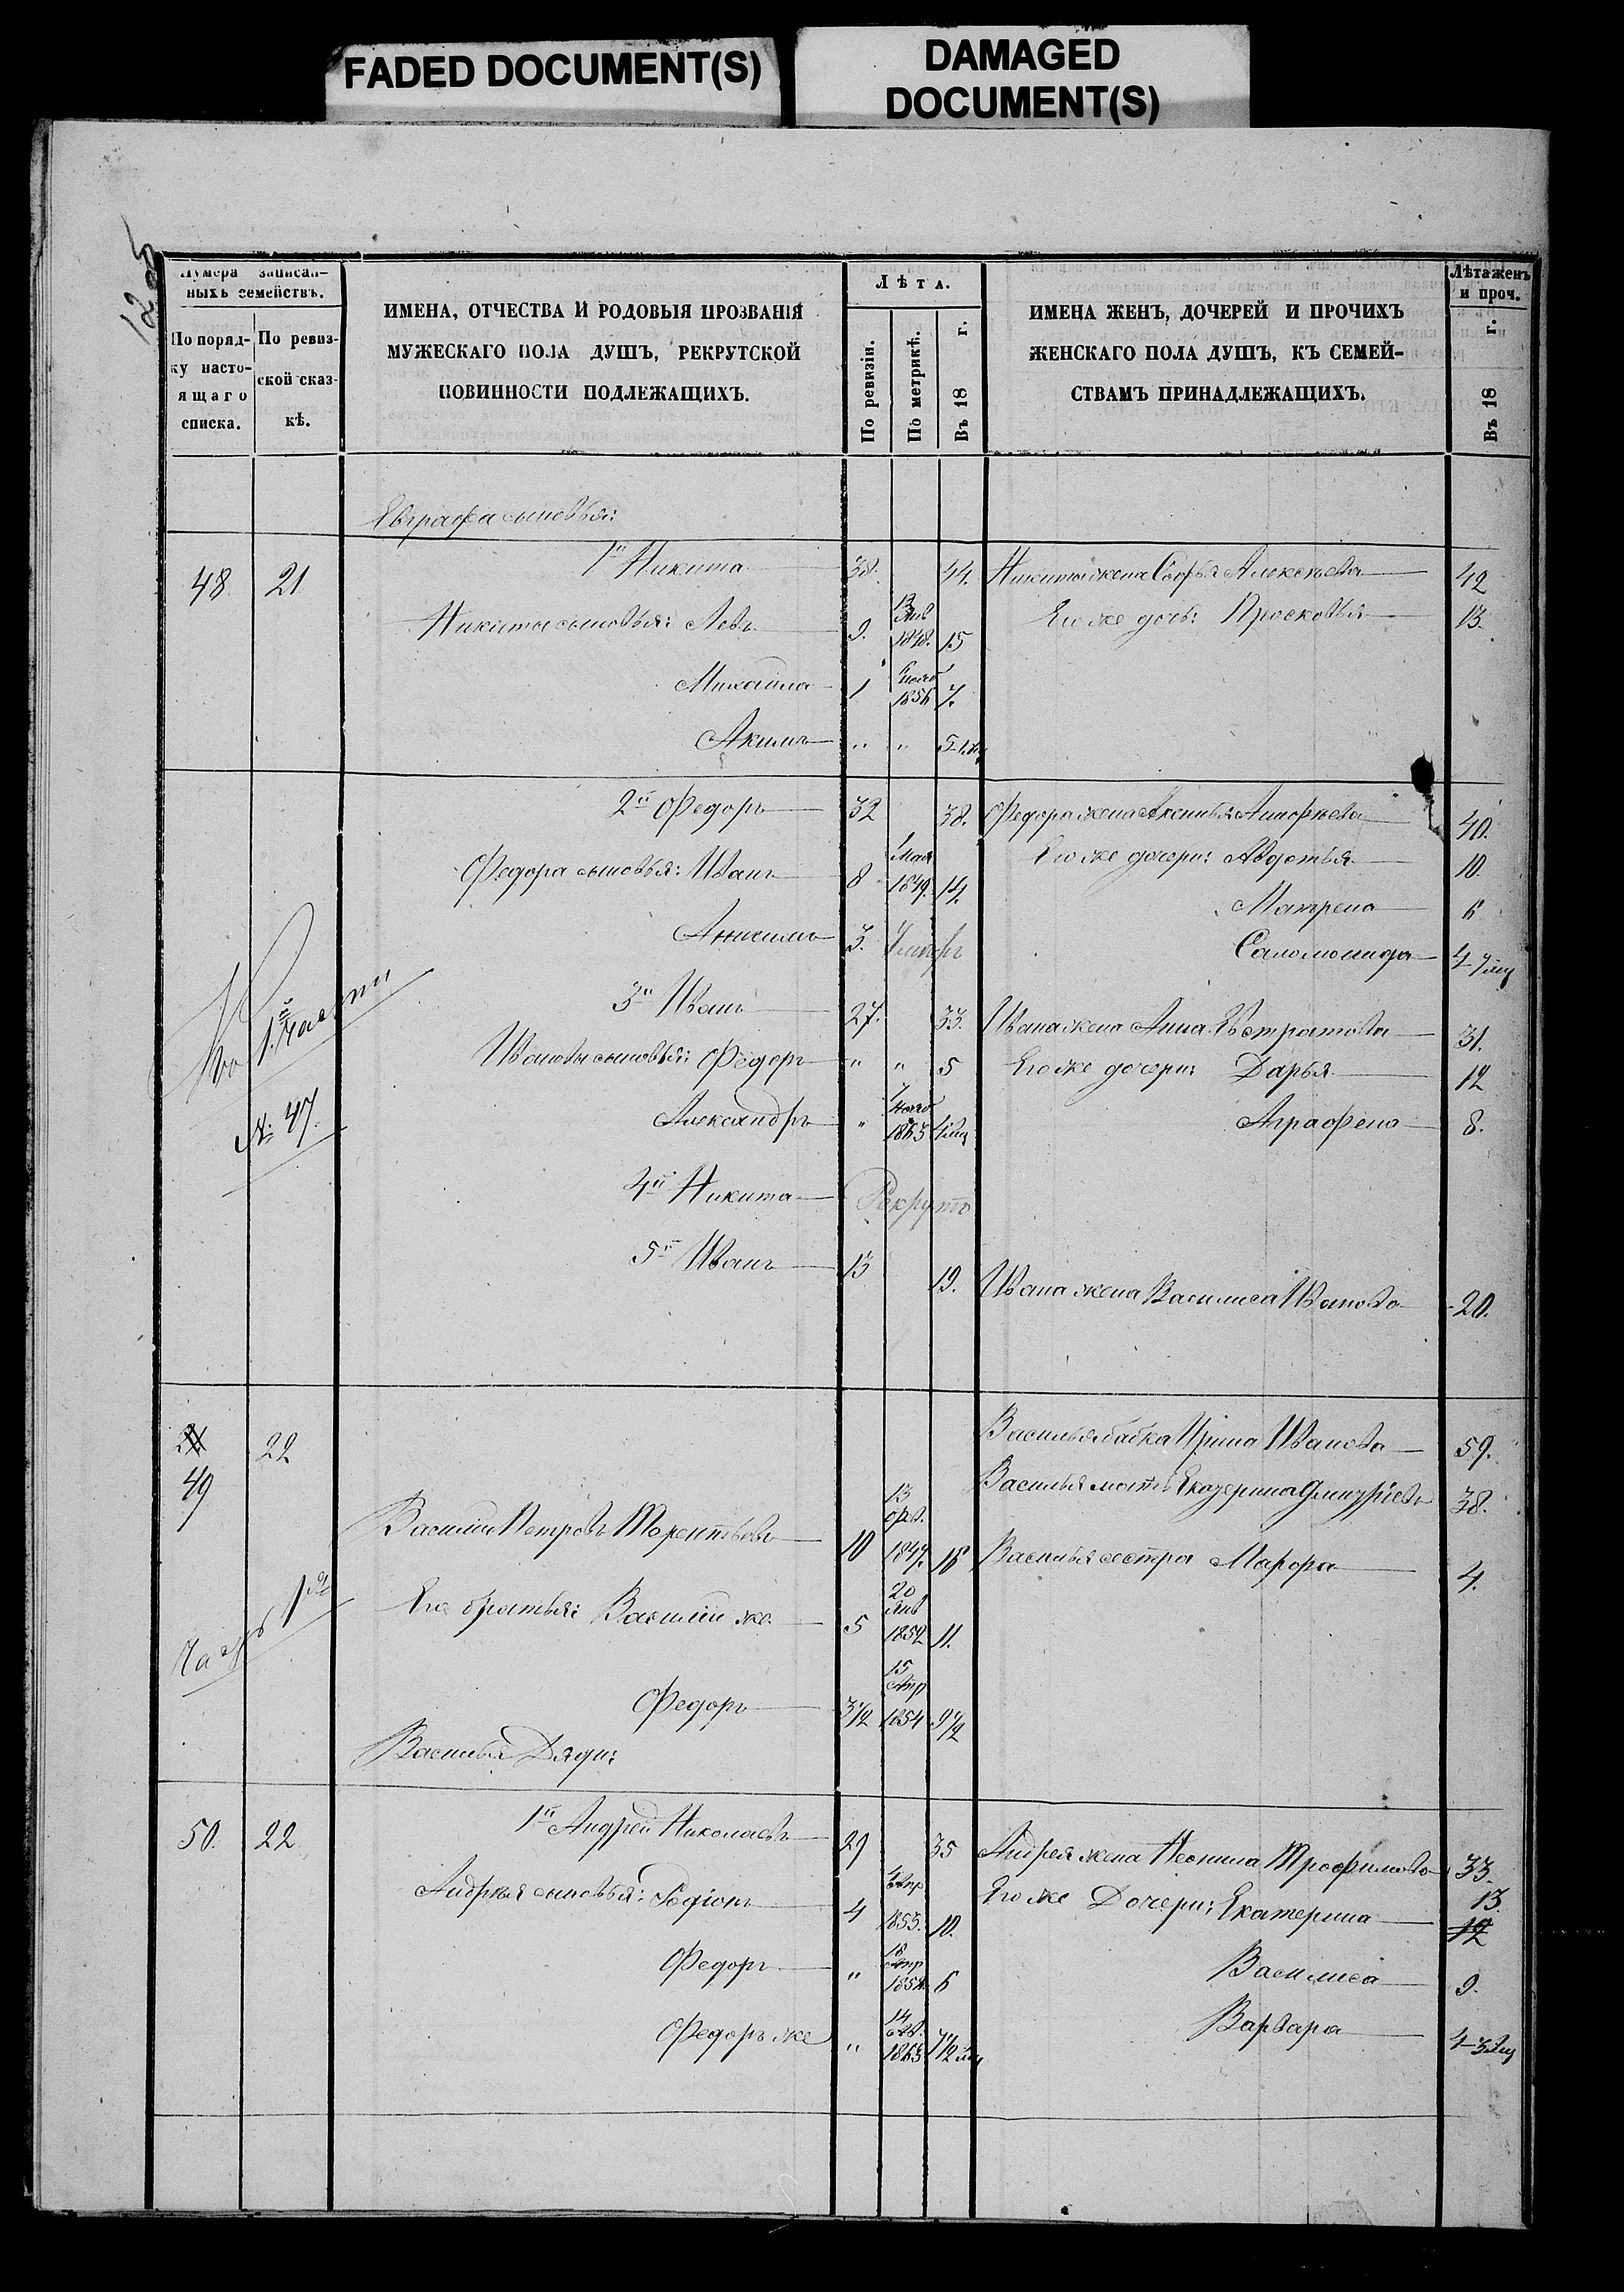 FADED DOCUMENT(S)
DAMAGED
DOCUMENT(S)
Нумера записан-
ныхъ семействъ.
По поряд-
ку насто-
ящаго
списка.
По ревиз-
ской сказ-
кѣ.
ИМЕНА, ОТЧЕСТВА И РОДОВЫЯ ПРОЗВАНІЯ
МУЖЕСКАГО ПОЛА ДУШЪ, РЕКРУТСКОЙ
ПОВИННОСТИ ПОДЛЕЖАЩИХЪ.
Лѣта.
По ревизіи.
По метрикѣ.
Въ 18 г.
ИМЕНА ЖЕНЪ, ДОЧЕРЕЙ И ПРОЧИХЪ
ЖЕНСКАГО ПОЛА ДУШЪ, КЪ СЕМЕЙ-
СТВАМЪ ПРИНАДЛЕЖАЩИХЪ.
Лѣта женъ
и проч.
Въ 18 г.
Евграфа сыновья:
48 21 1й Никита 38. 44. Никиты жена Софья Алексѣева 42
Никиты сыновья: Левъ 9. 13 Янв 1848. 15 Его же дочь: Просковья 13.
Михайла 1 6 нояб 1856 7.
Акимъ " " 5
2й Федоръ 32 38. Федора жена Аксинья 40.
Федора сыновья: Иванъ 8 1 Мая 1849. 14. Его же дочери: Авдотья 10.
Матрена 6
Анисимъ 3. Умеръ Саломонида 4-7 мц
3й Иванъ 27. 33. Ивана жена Анна Евстратова 31.
Ивановы сыновья: Федоръ " " 5 Его же дочери: Дарья 12
Александръ " 7 нояб 1863 Аграфена 8.
Во 1й части
№ 47.
4й Никита Рекрутъ
5й Иванъ 13 19. Ивана жена Василиса Иванова 20.
49 22 Василья бабка Ирина Иванова 59.
Василья мать Екатерина Дмитріева 38.
Василій Петровъ Терентьевъ 10 13 фев. 1847. 16 Василья сестра Марфа 4.
Часть 1я
Его братья: Василій же 5 20 Янв 1852 11.
Федоръ 3 1/2 15 Апр 1854 9 1/2
Василья Дяди:
50. 22 1й Андрей Николаевъ 29 35 Андрея жена Неонила Трофимова 33.
Андрея сыновья: Родіонъ 4 1855. 10. Его же Дочери: Екатерина 13.
12
Федоръ " 18 6 Василиса 9.
Федоръ же " 14 1863 Варвара 4-3 мц